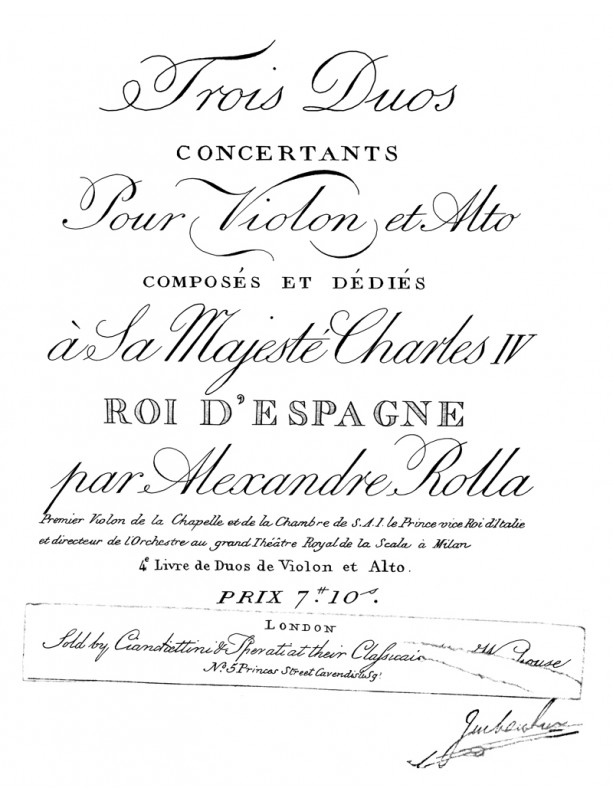 Trois Duos
CONCERTANTS
Pour Violon et Alto
COMPOSÉS ET DÉDIÉS
à Sa Majesté Charles IV
ROI D'ESPAGNE
par Alexandre Rolla
Premier Violon de la Chapelle et de la Chambre de S.A.I. le Prince vice Roi d'Italie
et directeur de l'Orchestre au grand Théâtre Royal de la Scala à Milan
4e Livre de Duos de Violon et Alto.
PRIX 7.# 10s.
LONDON
Sold by Cianchettini & Sperati at their Classical House
No. 5 Princes Street Cavendish Sqr.